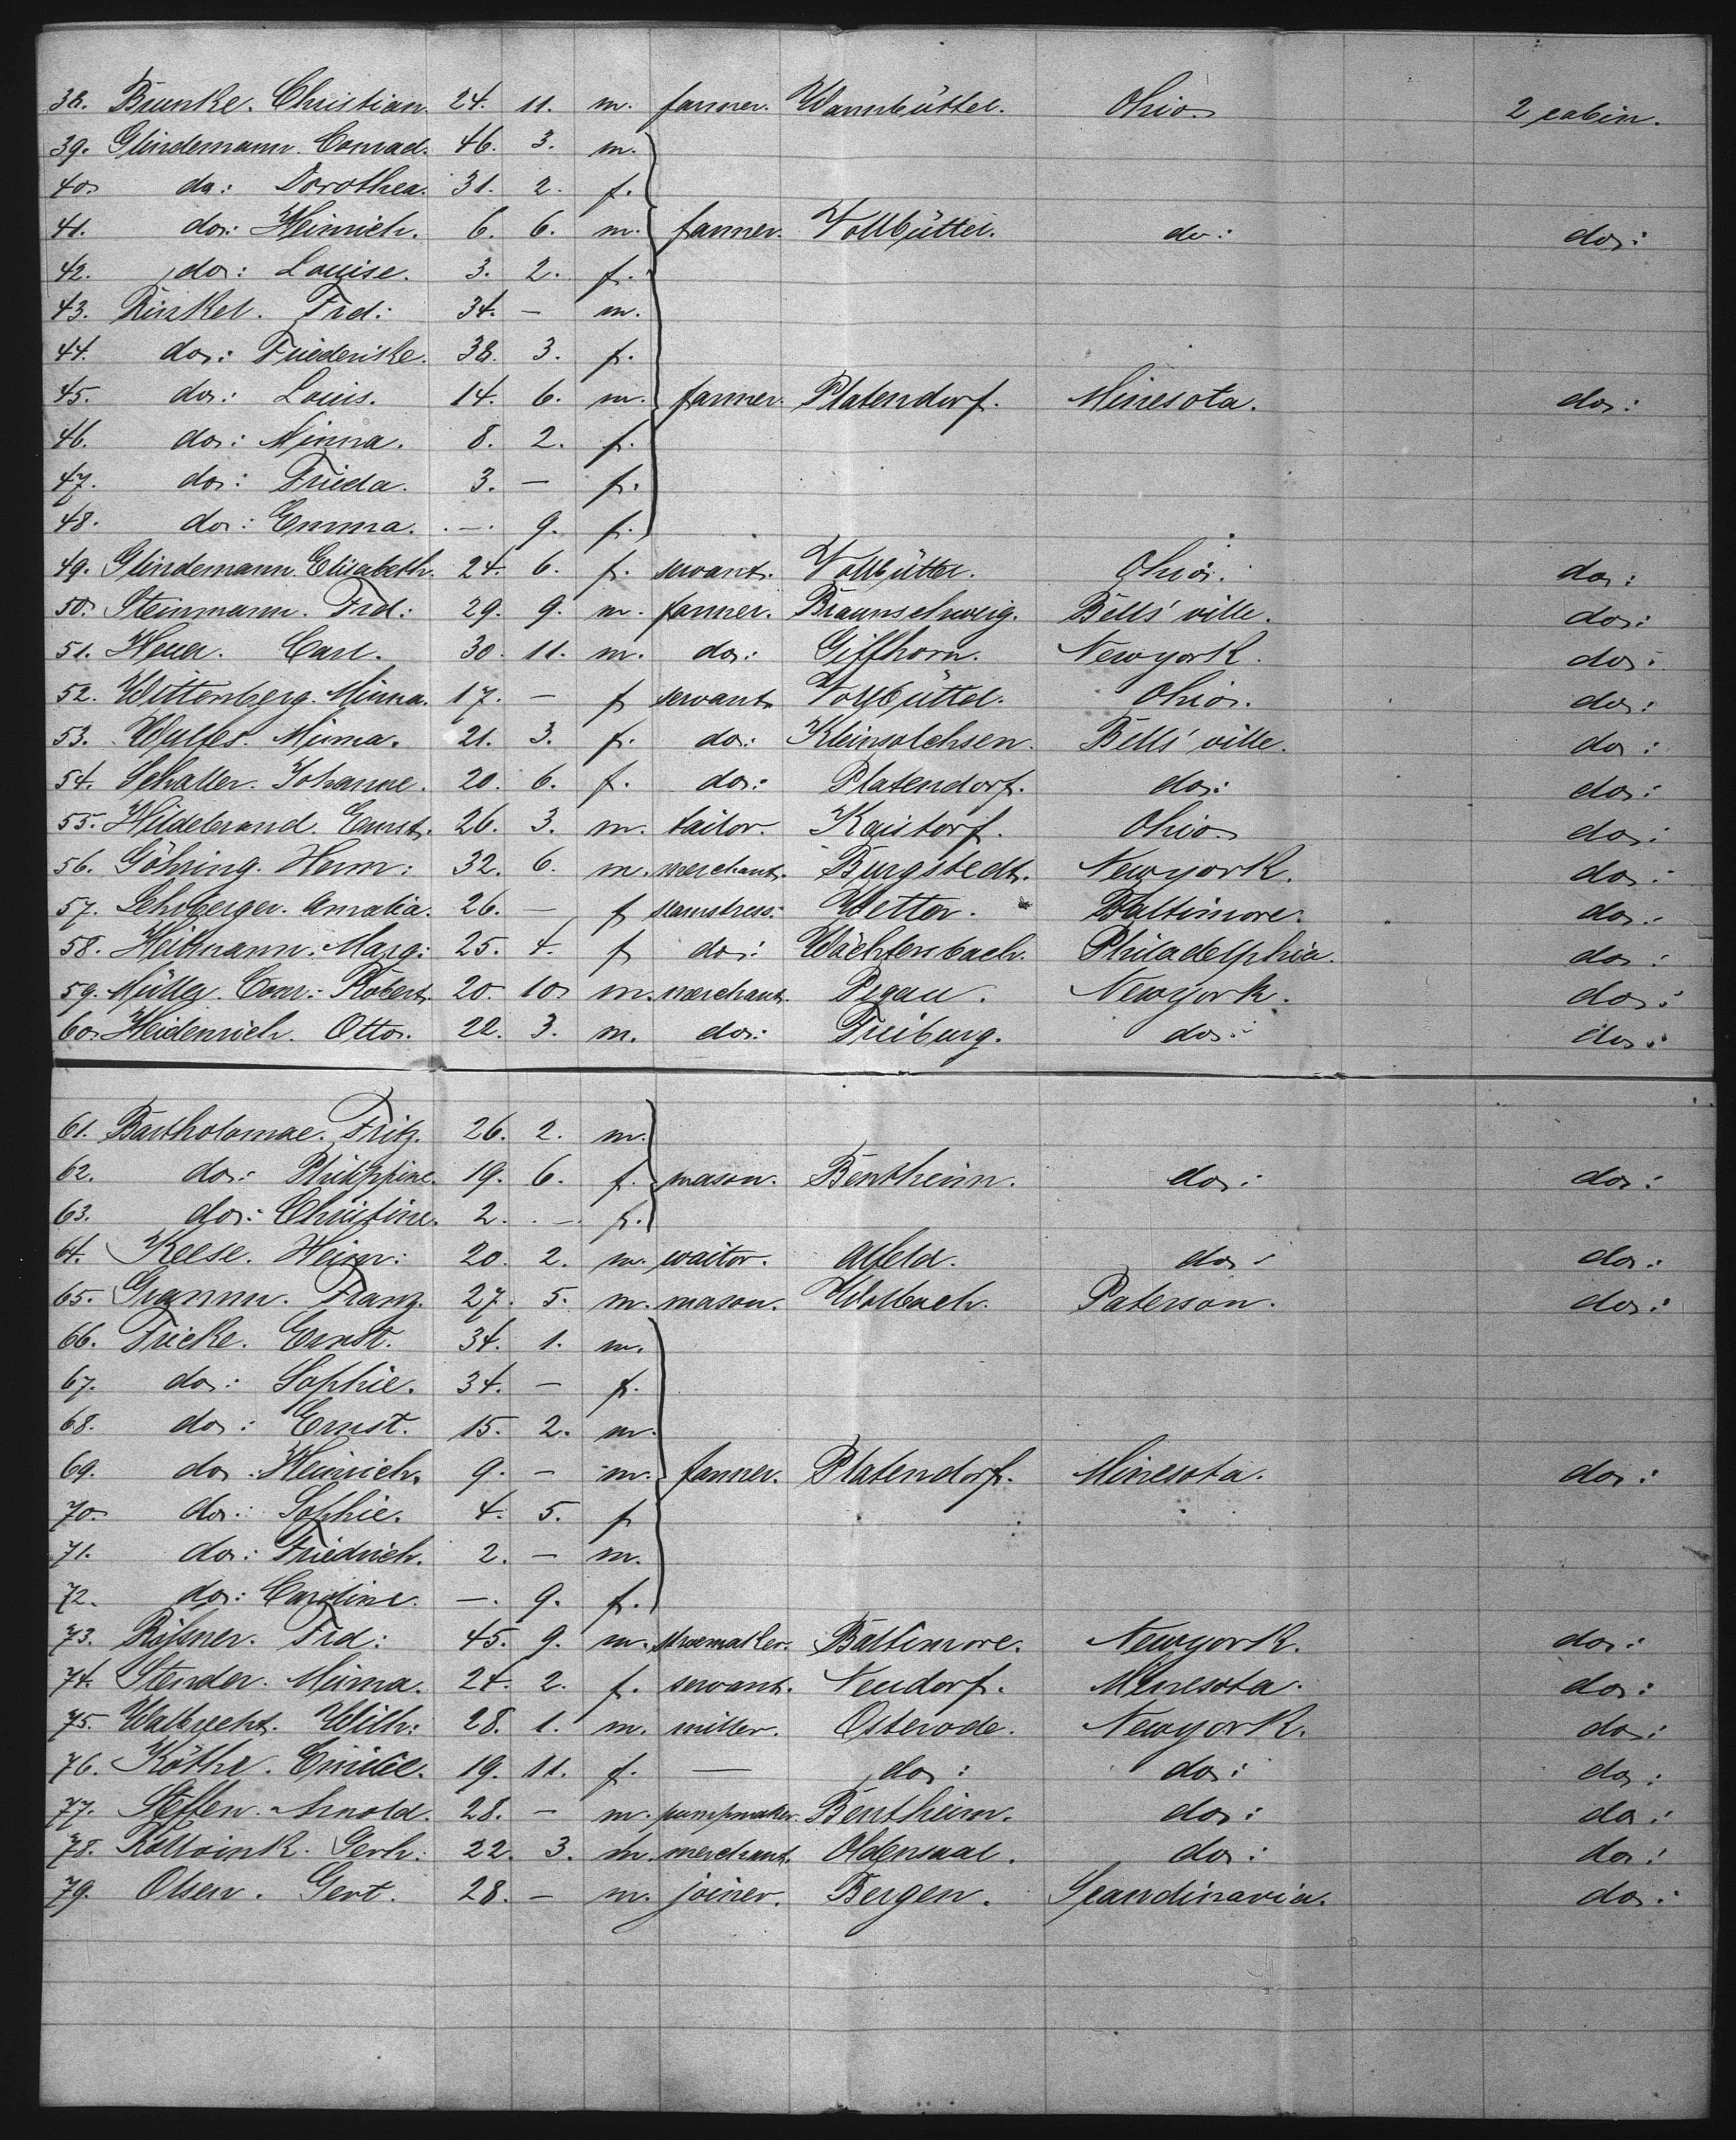 38. Brunke. Christian. 24. 11. m. farmer. Wannbüttel. Ohio. 2 cabin.
39. Glindemann. Conrad. 46. 3. m.
40. do: Dorothea. 31. 2. f.
41. do: Heinrich. 6. 6. m. farmer. Vollbüttel. do: do:
42. do: Louise. 3. 2. f.
43. Rinkel. Frd: 34. — m.
44. do: Friederike. 38. 3. f.
45. do: Louis. 14. 6. m. farmer. Platendorf. Minesota. do:
46. do: Minna. 8. 2. f.
47. do: Frieda. 3. — f.
48. do: Emma. — 9. f.
49. Glindemann. Elisabeth. 24. 6. f. servant. Vollbüttel. Ohio. do:
50. Steinmann. Frd: 29. 9. m. farmer. Braunschweig. Bells'ville. do:
51. Heuer. Carl. 30. 11. m. do: Giffhorn. Newyork. do:
52. Wittenberg. Minna. 17. — f servant. Vollbüttel. Ohio. do:
53. Wulfes. Minna. 21. 3. f. do: Kleinsolchsen. Bells'ville. do:
54. Schaller. Johanne. 20. 6. f. do: Platendorf. do: do:
55. Hildebrand. Ernst. 26. 3. m. tailor. Kaistorf. Ohio. do:
56. Göhring. Herm: 32. 6. m. merchant. Burgstedt. Newyork. do:
57. Lehrberger. Amalia. 26. — f seamstress. Wetter. Baltimore. do:
58. Heitmann. Marg: 25. 4. f do: Wächtersbach. Philadelphia. do:
59. Müller. Conr: Robert. 20. 10. m. merchant. Pegau. Newyork. do:
60. Heidenrich. Otto. 22. 3. m. do: Freiburg. do: do:
61. Bartholomae. Fritz. 26. 2. m.
62. do: Philippine. 19. 6. f. mason. Bentheim. do: do:
63. do: Christine. 2. — f.
64. Keese. Heinr: 20. 2. m. waitor. Alfeld. do: do:
65. Gramm. Franz. 27. 5. m. mason. Wolbach. Paterson. do:
66. Fricke. Ernst. 34. 1. m.
67. do: Sophie. 34. — f.
68. do: Ernst. 15. 2. m.
69. do: Heinrich. 9. — m. farmer. Platendorf. Minesota. do:
70. do: Sophie. 4. 5. f
71. do: Friedrich. 2. — m.
72. do: Caroline. — 9. f.
73. Rößner. Frd: 45. 9. m. shoemaker. Baltimore. Newyork. do:
74. Stender. Minna. 24. 2. f. servant. Neudorf. Minesota. do:
75. Walbrecht. Wilh: 28. 1. m. miller. Osterode. Newyork. do:
76. Köthe. Emilie. 19. 11. f. — do: do: do:
77. Steffen. Arnold. 28. — m. pumpmaker. Bentheim. do: do:
78. Koltvink. Gerh: 22. 3. m. merchant. Oldensaal. do: do:
79. Olsen. Gert. 28. — m. joiner. Bergen. Scandinavia. do: